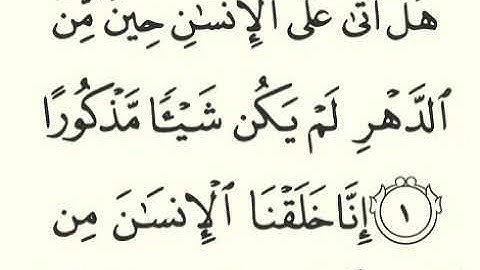 هَلْ أَتَىٰ عَلَى ٱلْإِنسَـٰنِ حِينٌ مِّنَ
ٱلدَّهْرِ لَمْ يَكُن شَيْـًٔا مَّذْكُورًا
١ إِنَّا خَلَقْنَا ٱلْإِنسَـٰنَ مِن